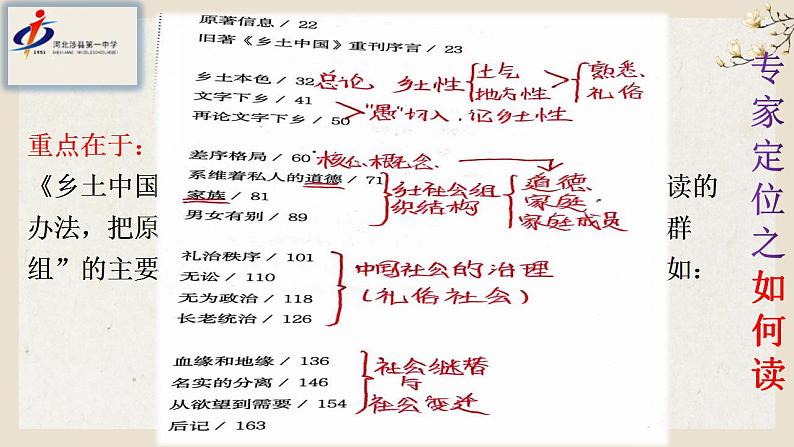 河北涉县第一中学
1951
原著信息 / 22
旧著《乡土中国》重刊序言 / 23
乡土本色 / 32 总论 乡土性 土气 地方性 熟悉、礼俗
文字下乡 / 41
再论文字下乡 / 50 "愚"切入,论乡土性
差序格局 / 60 核心、根
系维着私人的道德 / 71
家族 / 81
男女有别 / 89
乡土社会组织结构
道德
家庭
家庭成员
礼治秩序 / 101
无讼 / 110
无为政治 / 118
长老统治 / 126
中国社会的治理
(礼俗社会)
血缘和地缘 / 136
名实的分离 / 146
从欲望到需要 / 154
后记 / 163
社会继替
与
社会变迁
重点在于:
《乡土中国 读的
办法,把原 群
组”的主要 如:
专家定位之如何读